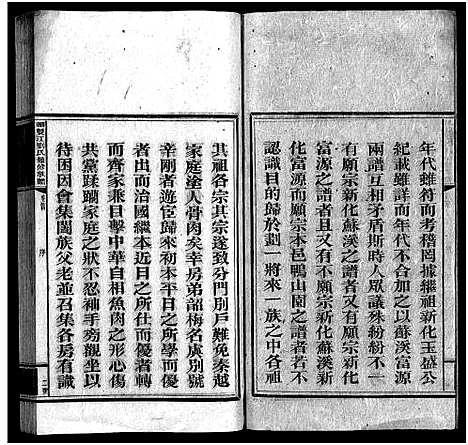 年代雖符而考稽罔據繼祖新化玉盛公
紀載雖詳而年代不合加之以蘇溪富源
兩譜互相矛盾斯時人眾議殊紛紛不一
有願宗新化蘇溪之譜者又有願宗新化
富源之譜者並有不願宗新化蘇溪新化
富源而願宗本邑鴨山園之譜者若不
認識目的歸於劃一將來一族之中各祖
其祖各宗其宗遂致分門別戶難免秦越
家庭塗人骨肉矣幸房弟韶梅名虞別號
幸剛者遊宦歸來初本平日之所學而優
者出而治國繼本近日之所仕而優者轉
而齊家兼目擊中華自相魚肉之形心傷
共黨蹂躪家庭之狀不忍袖手旁觀坐以
待困因會集闔族父老並召集各房有識
序